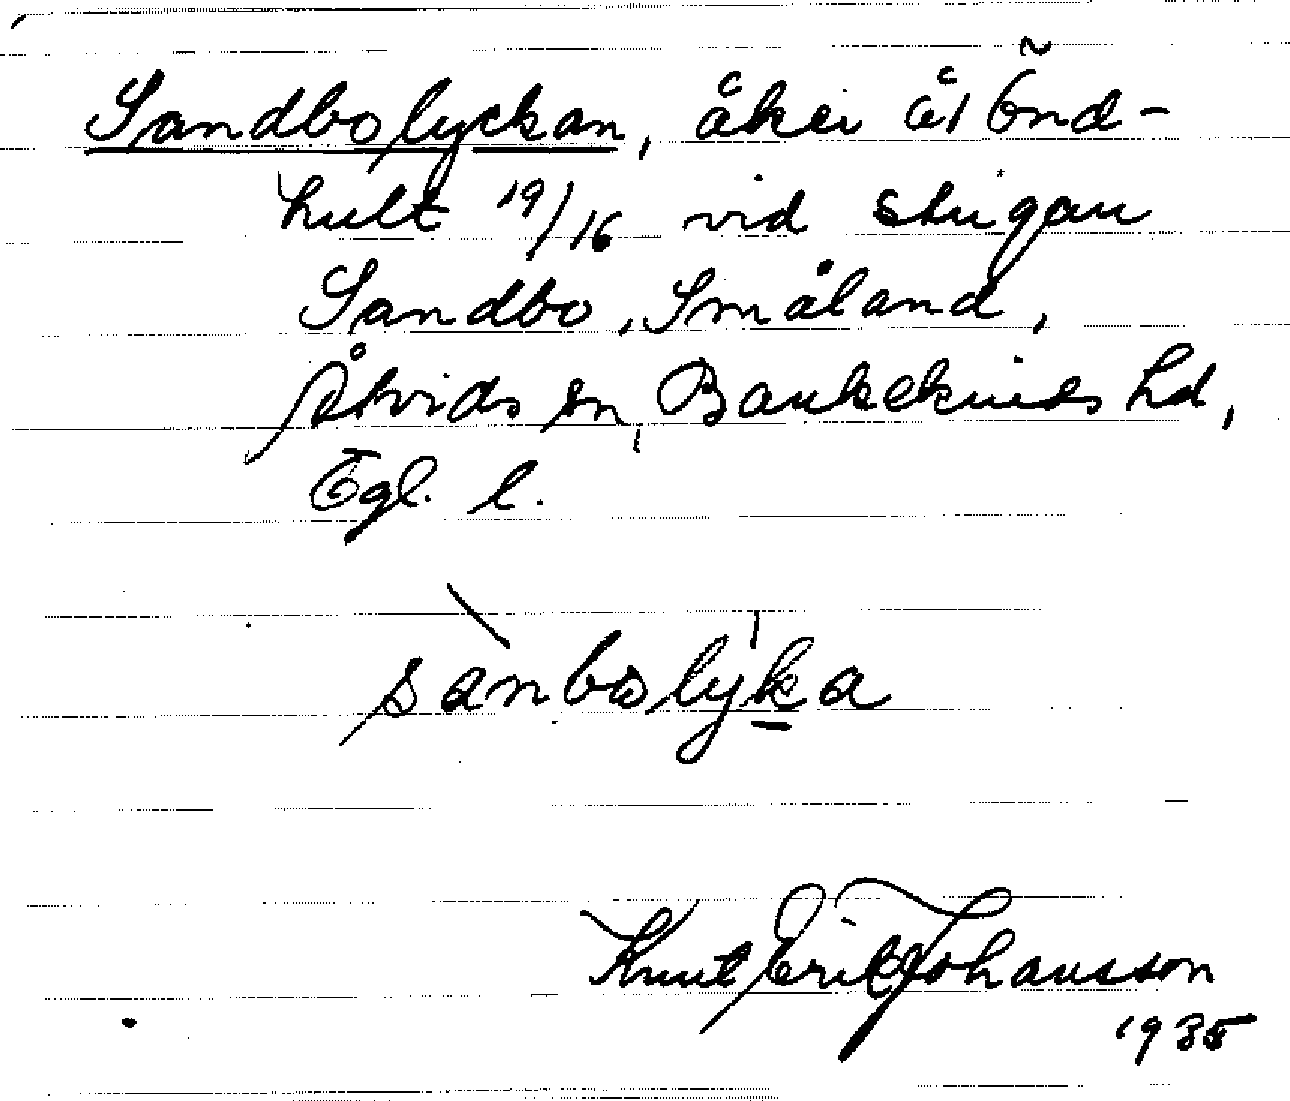 Sandbolyckan, åker åt Önd-
hult 19/16 vid stugan
Sandbo, Småland,
Åtvids sn, Bankekinds hd,
Ögl. l.
sànbolyka
Knut Erik Johansson
1935